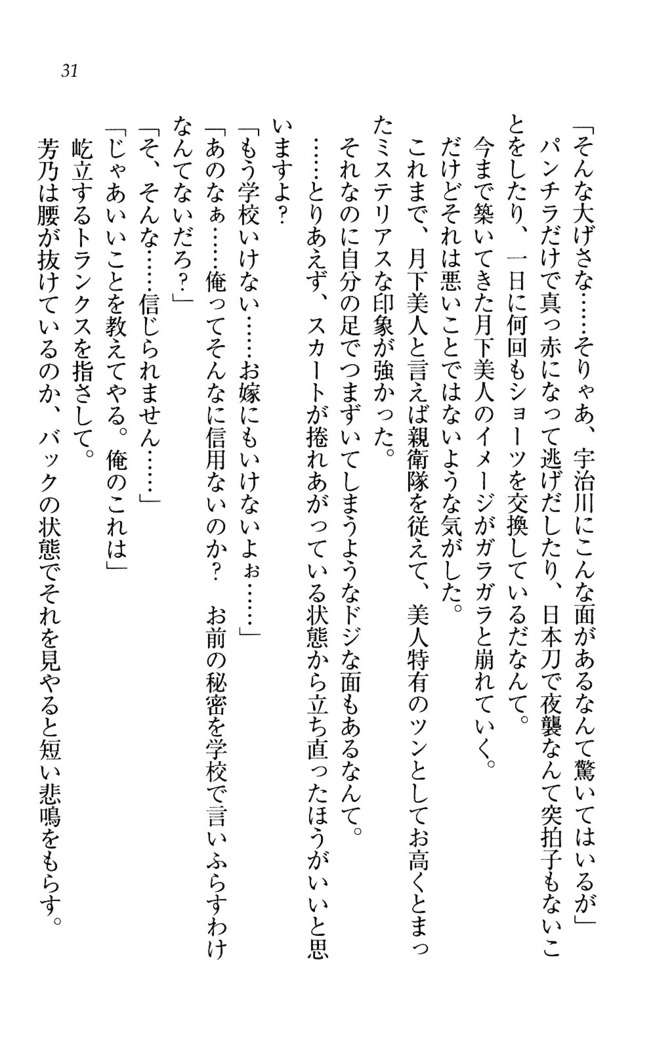 31
「そんな大げさな……そりゃあ、宇治川にこんな面があるなんて驚いてはいるが」
パンチラだけで真っ赤になって逃げだしたり、日本刀で夜襲なんて突拍子もないこ
とをしたり、一日に何回もショーツを交換しているだなんて。
今まで築いてきた月下美人のイメージがガラガラと崩れていく。
だけどそれは悪いことではないような気がした。
これまで、月下美人と言えば親衛隊を従えて、美人特有のツンとしてお高くとまっ
たミステリアスな印象が強かった。
それなのに自分の足でつまずいてしまうようなドジな面もあるなんて。
……とりあえず、スカートが捲れあがっている状態から立ち直ったほうがいいと思
いますよ?
「もう学校いけない……お嫁にもいけないよぉ……」
「あのなぁ……俺ってそんなに信用ないのか? お前の秘密を学校で言いふらすわけ
なんてないだろ?」
「そ、そんな……信じられません……」
「じゃあいいことを教えてやる。俺のこれは」
屹立するトランクスを指さして。
芳乃は腰が抜けているのか、バックの状態でそれを見やると短い悲鳴をもらす。